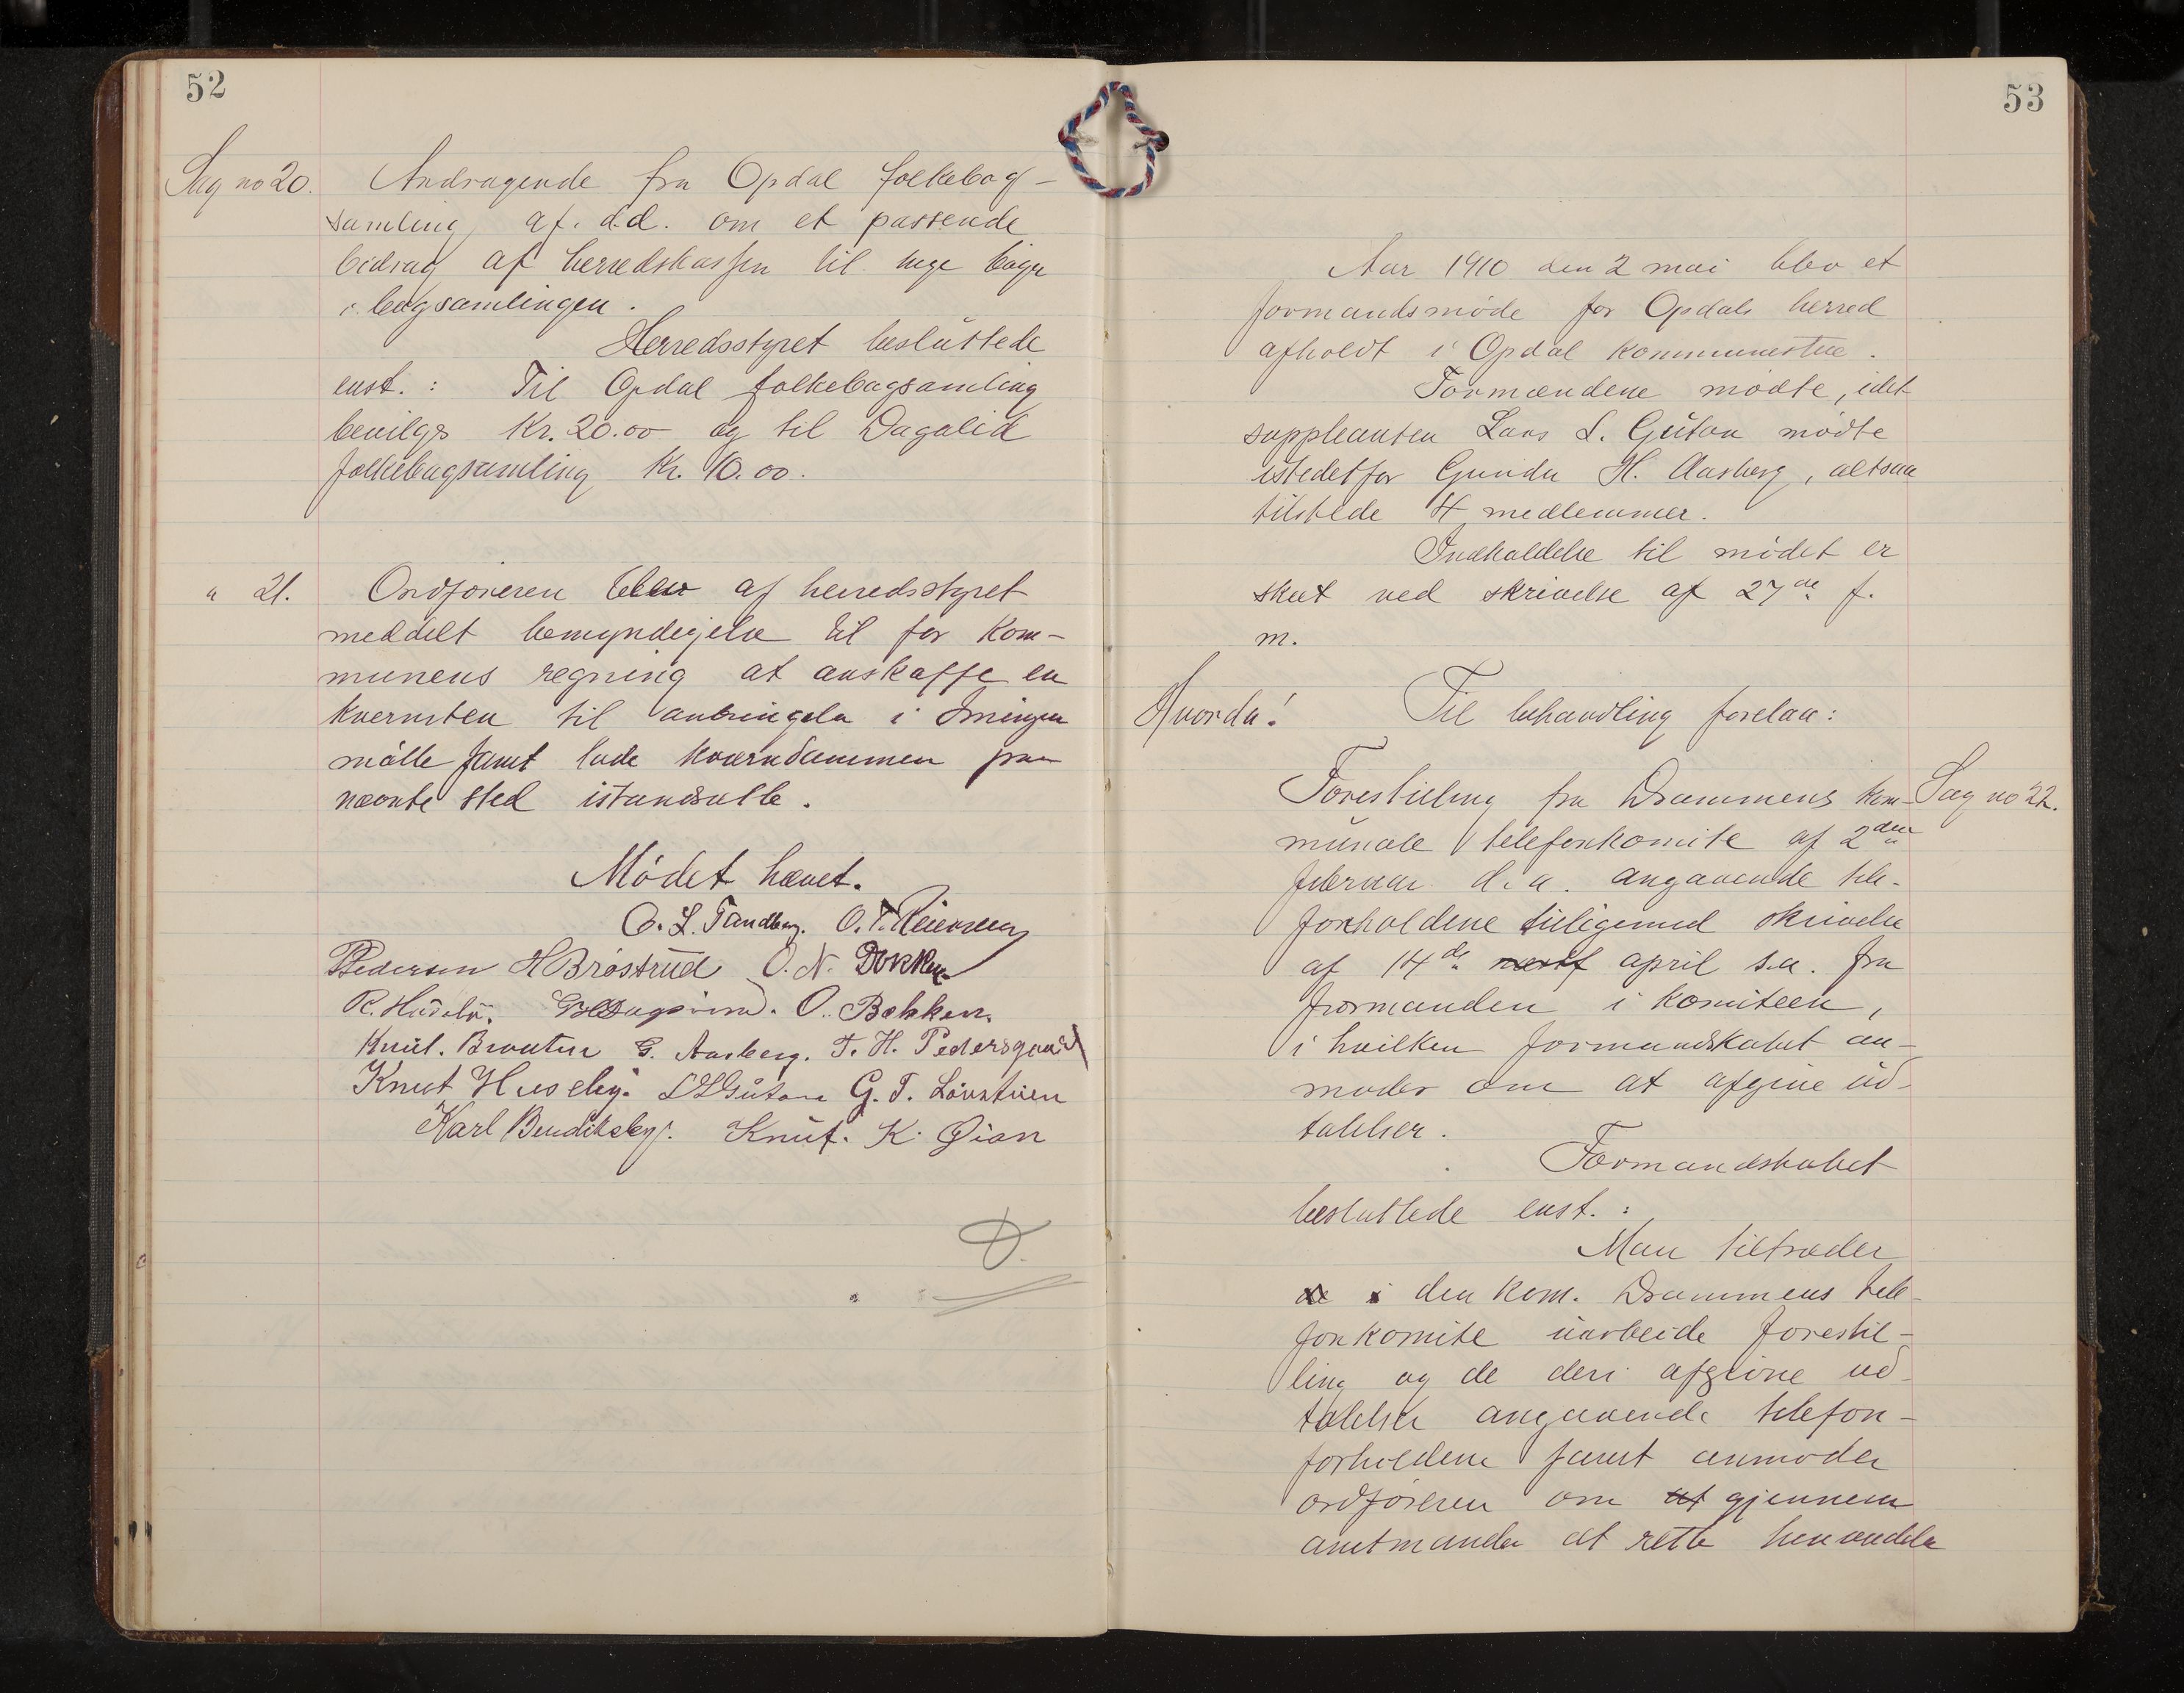 52
Sag no 20. Andragende fra Opdal folkebog-
samling af. d.d. om et passende
bidrag af herredskassen til nye bøger
i bogsamlingen.
Herredsstyret besluttede
enst. : Til Opdal folkebogsamling
bevilges Kr. 20.00 og til Dagalid
folkebogsamling Kr. 10.00.
" 21. Ordføreren blev af herredsstyret
meddelt bemyndigelse til for kom-
munens regning at anskaffe en
kvernsten til anbringelse i
mølle samt lade kverndammen paa
nævnte sted istandsætte.
Mødet hævet.
O. L. Tandberg. O. T.
Pedersen H Brøstrud O. N. Dokken
O. Bakken.
Knut. Braaten G. Aasberg. T. H. Pedersgaard
Knut Huseby. G. T. Løvstuen
Karl Knut. K.
53
Aar 1910 den 2 mai blev et
formandsmøde for Opdals herred
afholdt i Opdal kommunestue.
Formændene mødte, idet
suppleanten Lars L. Gûton mødte
istedetfor Gunder H. Aasberg, altsaa
tilstede 4 medlemmer.
Indkaldelse til mødet er
skeet ved skrivelse af 27de f.
m.
Hvorda! Til behandling forelaa:
Forestilling fra Drammens kom- Sag no 22.
munale telefonkomite af 2den
februar d. a. angaaende tele-
fonholdene tilligemed skrivelse
af 14de april s.a. fra
formanden i komiteen,
i hvilken formandskabet an-
modes om at afgive ud-
talelser.
Formandskabet
besluttede enst. :
Man tiltræder
den kom. Drammens tele-
fonkomite uarbeide forestil-
ling og de deri afgivne ud-
talelser angaaende telefon-
forholdene samt anmoder
ordføreren om at gjennem
amtmanden at rette henvendelse